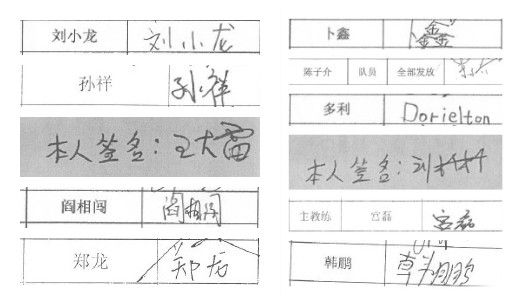 刘小龙 刘小龙
孙祥 孙祥
本人签名：王大雷
阎相闯 阎相闯
郑龙 郑龙
卜鑫 鑫
陈子介 队员 全部发放
多利 Dorielton
本人签名：刘
主教练 宫磊 宫磊
韩鹏 韩鹏